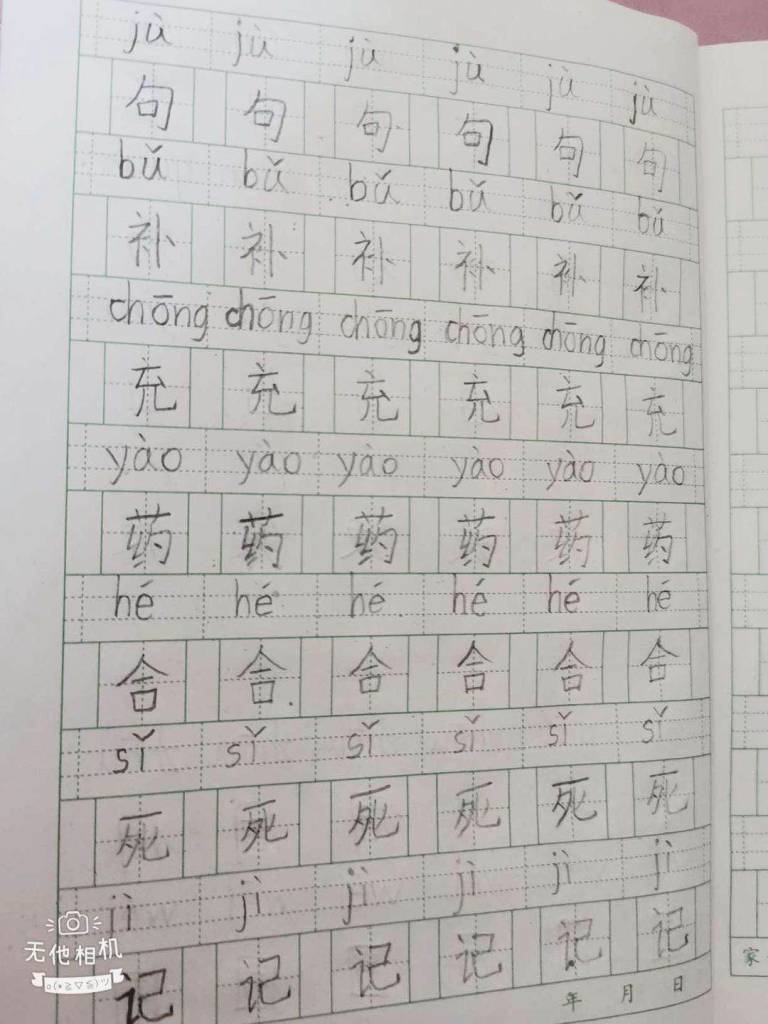 jù jù jù jù jù jù
句 句 句 句 句 句
bǔ bǔ bǔ bǔ bǔ bǔ
补 补 补 补 补 补
chōng chōng chōng chōng chōng chōng
充 充 充 充 充 充
yào yào yào yào yào yào
药 药 药 药 药 药
hé hé hé hé hé hé
合 合 合 合 合 合
sǐ sǐ sǐ sǐ sǐ sǐ
死 死 死 死 死 死
jì jì jì jì jì jì
记 记 记 记 记 记
年 月 日
家
无他相机